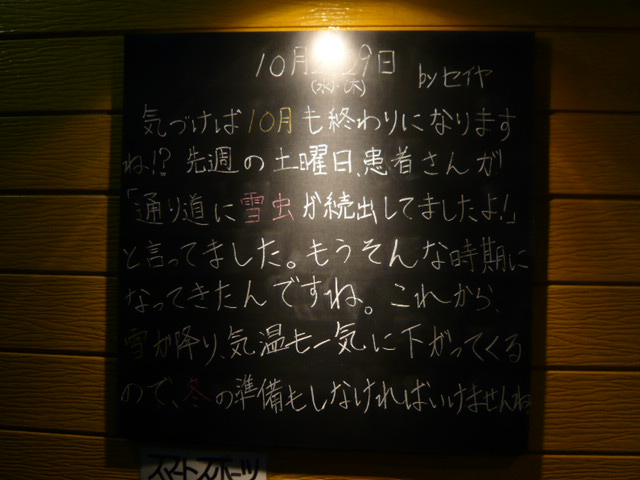 10月 29日
(水・木) byセイヤ
気づけば10月も終わりになります
ね!?先週の土曜日、患者さんが
「通り道に雪虫が続出してましたよ!」
と言ってました。もうそんな時期に
なってきたんですね。これから、
雪が降り、気温も一気に下がってくる
ので、冬の準備もしなければいけませんね
スマートスポーツ